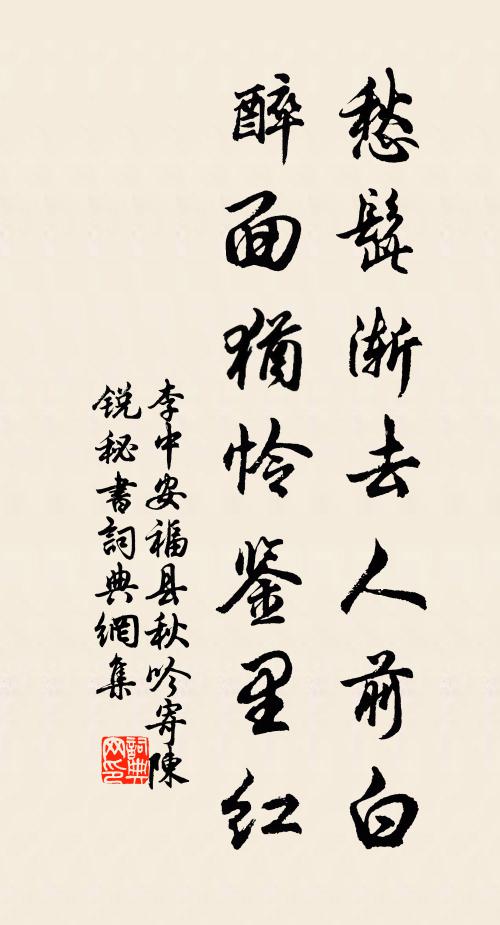 愁鬓渐去人前白
醉面犹怜鉴里红
李中安福县秋吟寄陳
锐秘書詞典網集
詞典网印